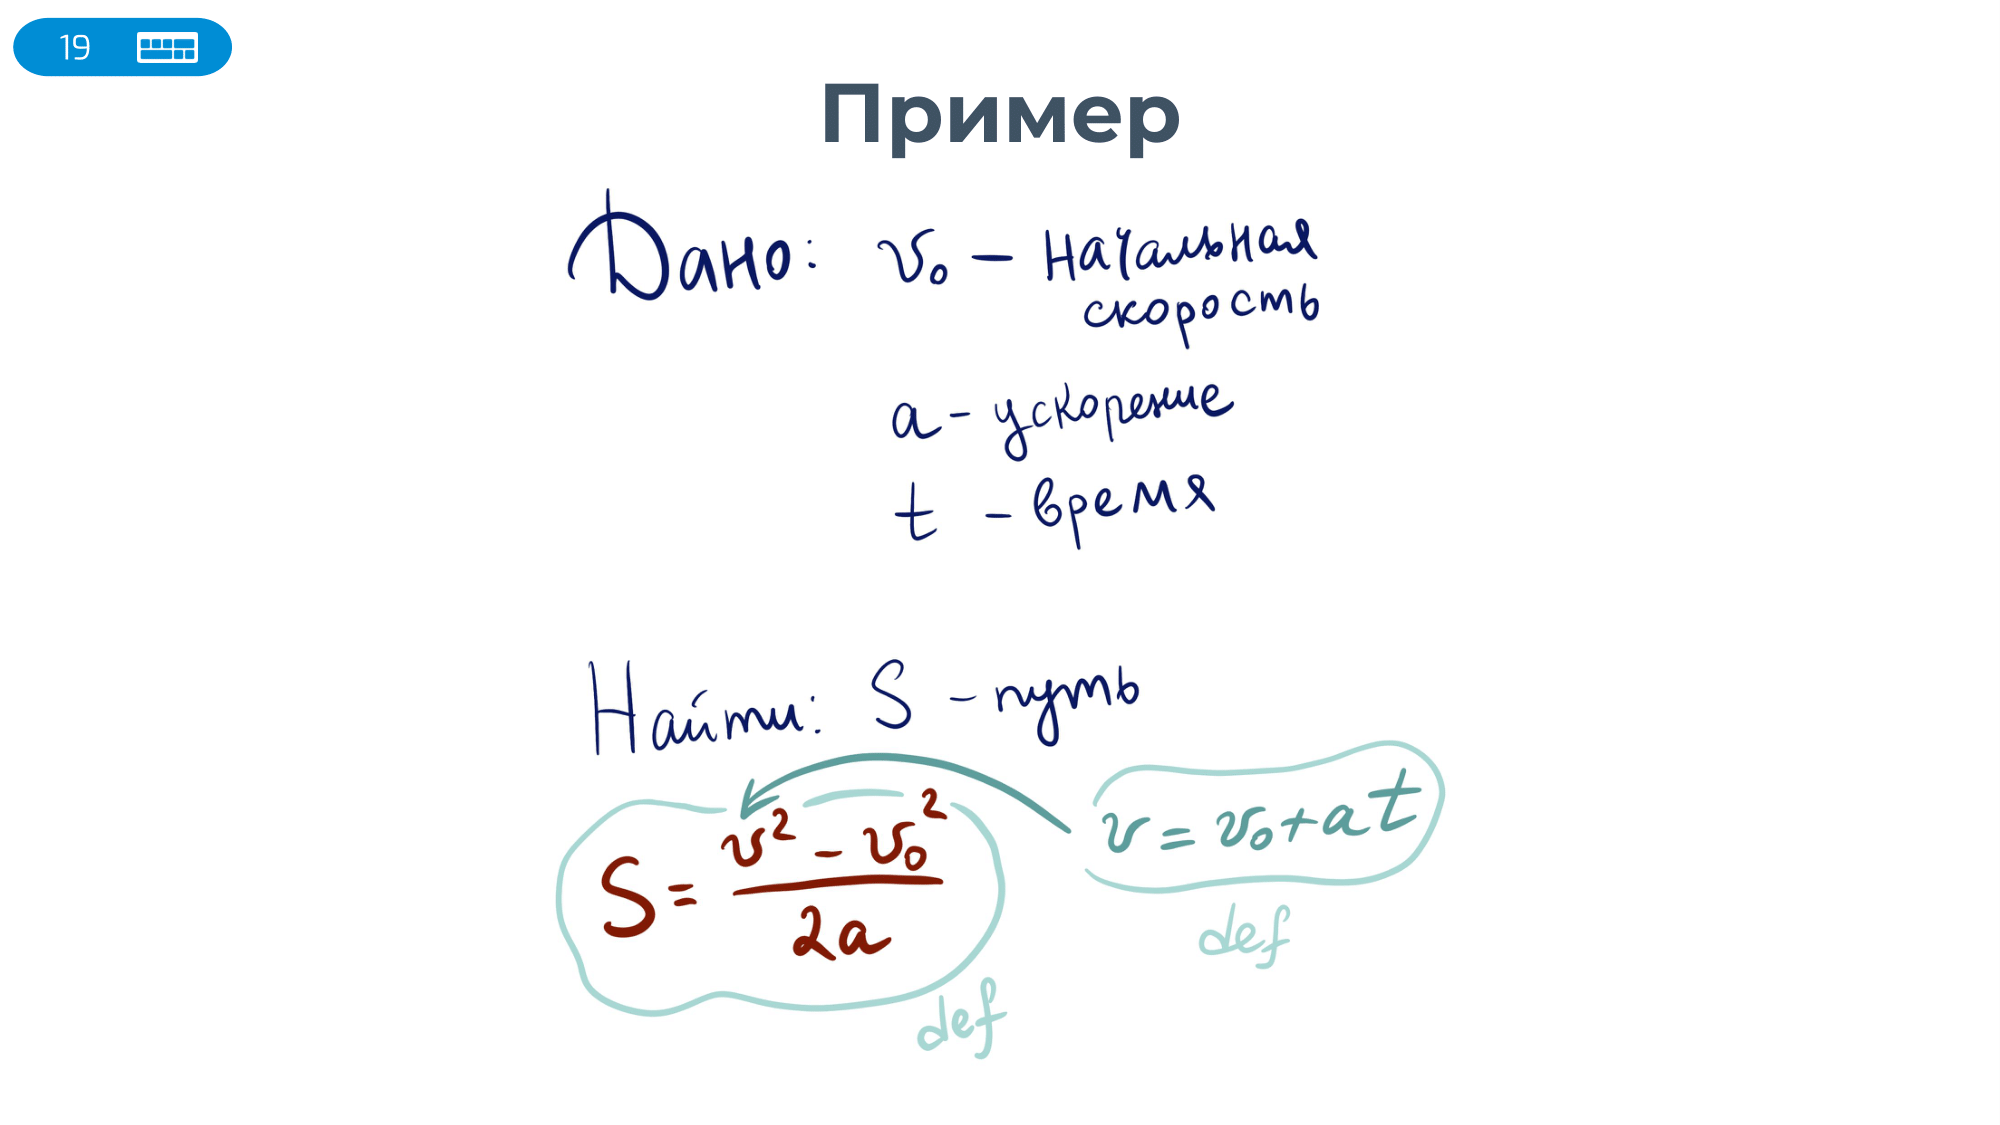 19
Пример
Дано: v₀ – начальная
скорость
a – ускорение
t – время
Найти: S – путь
S = (v² – v₀²) / 2a
v = v₀ + at
def
def